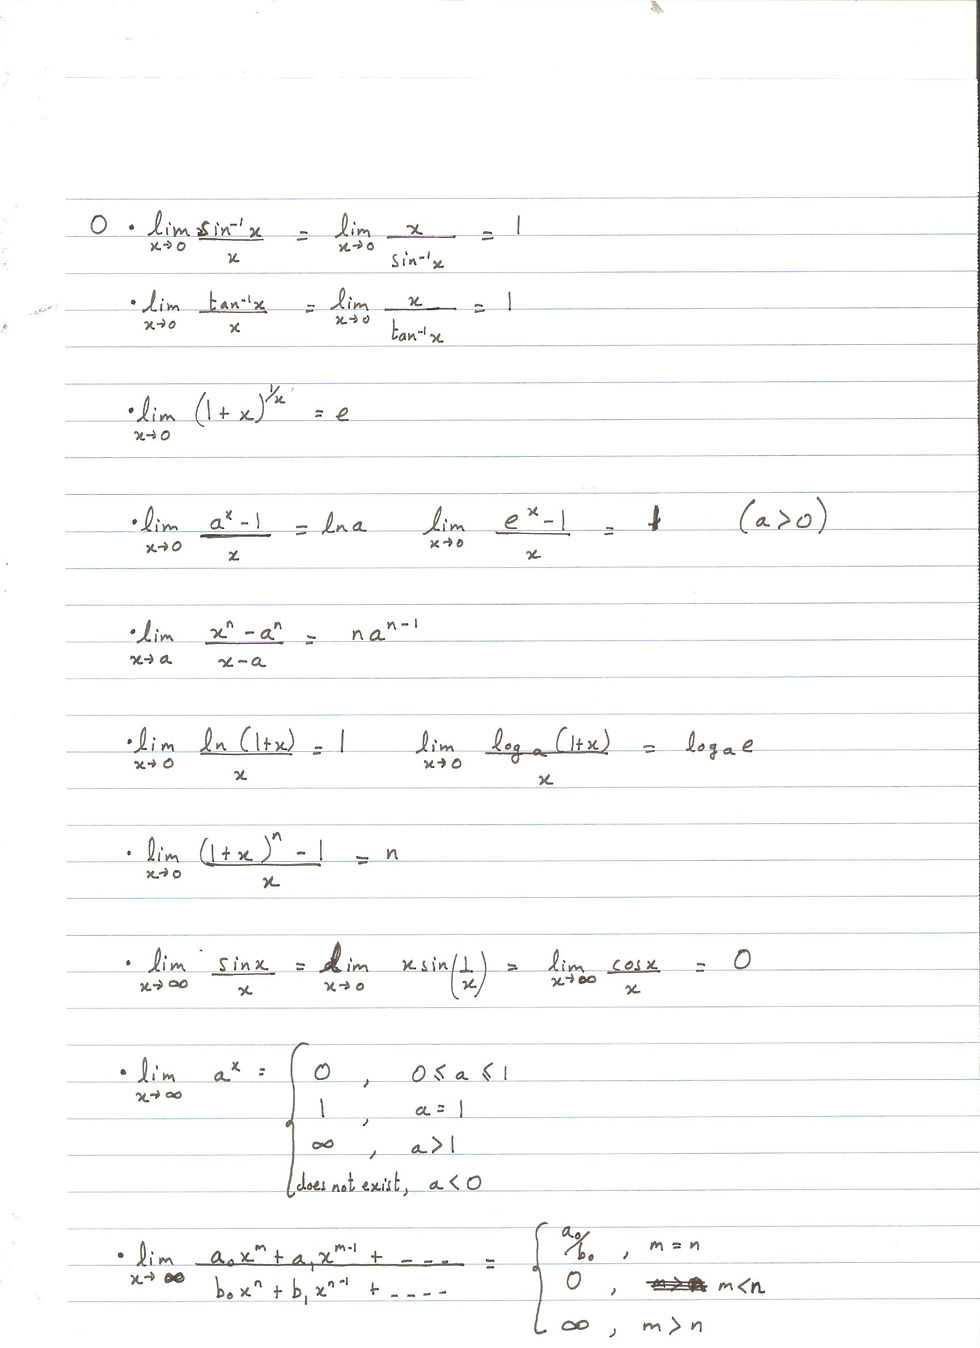 O • lim x→0 sin⁻¹x / x = lim x→0 x / sin⁻¹x = 1
• lim x→0 tan⁻¹x / x = lim x→0 x / tan⁻¹x = 1
• lim x→0 (1 + x)^1/x = e
• lim x→0 aˣ - 1 / x = ln a lim x→0 eˣ - 1 / x = 1 (a > 0)
• lim x→a xⁿ - aⁿ / x - a = n aⁿ⁻¹
• lim x→0 ln (1+x) / x = 1 lim x→0 logₐ (1+x) / x = logₐ e
• lim x→0 (1+x)ⁿ - 1 / x = n
• lim x→∞ sin x / x = lim x→0 x sin(1/x) = lim x→∞ cos x / x = 0
• lim x→∞ aˣ = { 0 , 0 ⩽ a ⩽ 1
1 , a = 1
∞ , a > 1
does not exist, a < 0
• lim x→∞ a₀xᵐ + a₁xᵐ⁻¹ + ---- / b₀xⁿ + b₁xⁿ⁻¹ + ---- = { a₀/b₀ , m = n
0 , m < n
∞ , m > n